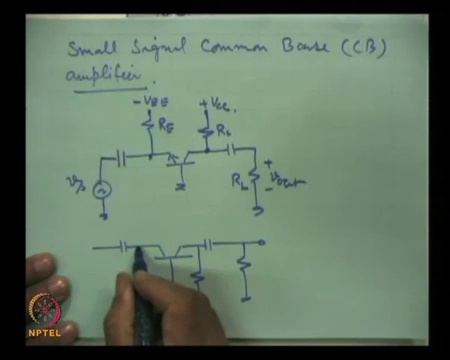 Small Signal Common Base (CB)
amplifier.
-VEE
+VCC.
RE
RC
vs
RL
+
vout
-
NPTEL